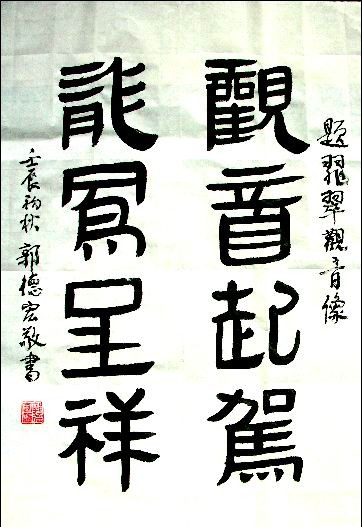 题翡翠觀音像
觀音起駕
龍鳳呈祥
壬辰初秋 郭德宏敬書